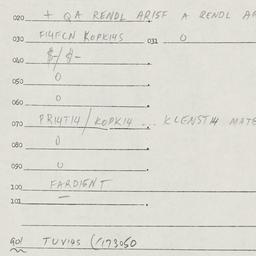 020 + QA RENDL ARISF A RENDL AF
030 FI4FCN KOPKI4S 031 0
040 $-/$-
050 0
060 0
070 PRI4TI4/KOPKI4 ... KLENSTI4 MATE
080 0
090 0
100 FARDIENT
101 —
901 TUVI4S (/173050